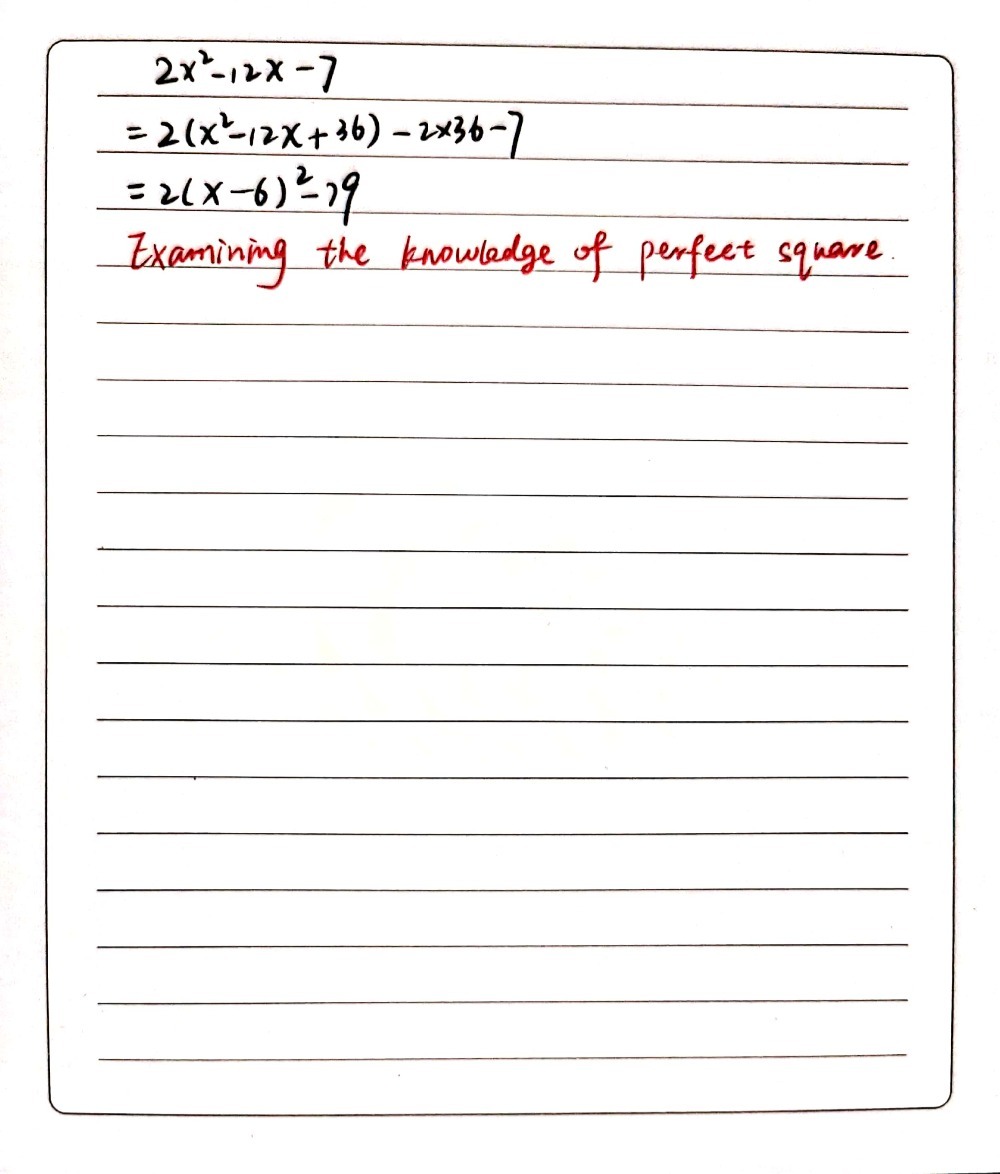 2x²-12x-7
=2(x²-12x+36)-2×36-7
=2(x-6)²-79
Examining the knowledge of perfect square.